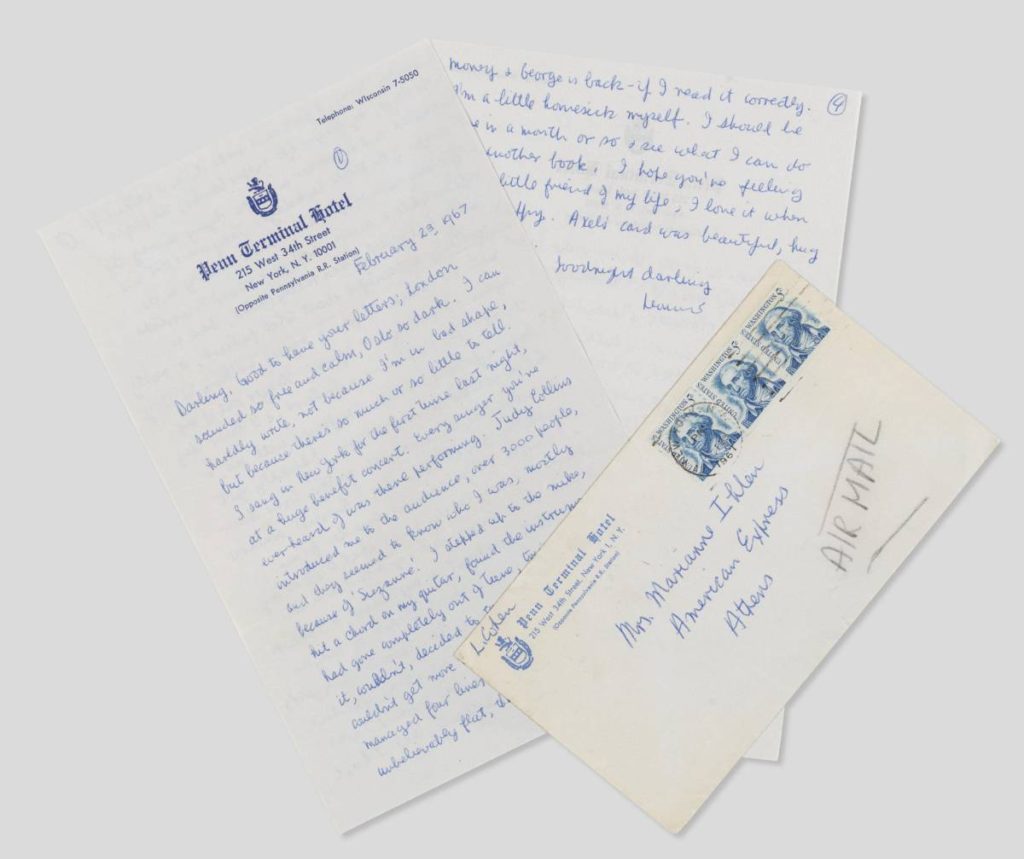 Telephone: WIsconsin 7-5050
①
Penn Terminal Hotel
215 West 34th Street
New York, N. Y. 10001
(Opposite Pennsylvania R.R. Station)
February 23 1967
Darling, Good to have your letters; London
sounded so free and calm, Oslo so dark. I can
hardly write, not because I'm in bad shape,
but because there's so much or so little to tell.
I sang in New York for the first time last night,
at a huge benefit concert. Every singer you've
ever heard of was there performing. Judy Collins
introduced me to the audience, over 3000 people,
and they seemed to know who I was, mostly
because of 'Suzanne'. I stepped up to the mike,
hit a chord on my guitar, found the instrum
had gone completely out of tune,
it, couldn't, decided to
couldn't get more
managed four lines
unbelievably flat,
money & George is back - if I read it correctly.
④
I'm a little homesick myself. I should be
in a month or so & see what I can do
another book. I hope you're feeling
little friend of my life, I love it when
Axel's card was beautiful, hug
Goodnight darling
WASHINGTON 5c
UNITED STATES
WASHINGTON 5c
UNITED STATES
WASHINGTON 5c
1967
L. Cohen
Penn Terminal Hotel
215 West 34th Street, New York 1, N. Y.
(Opposite Pennsylvania R.R. Station)
Mrs. Marianne Ihlen
American Express
Athens
AIR MAIL